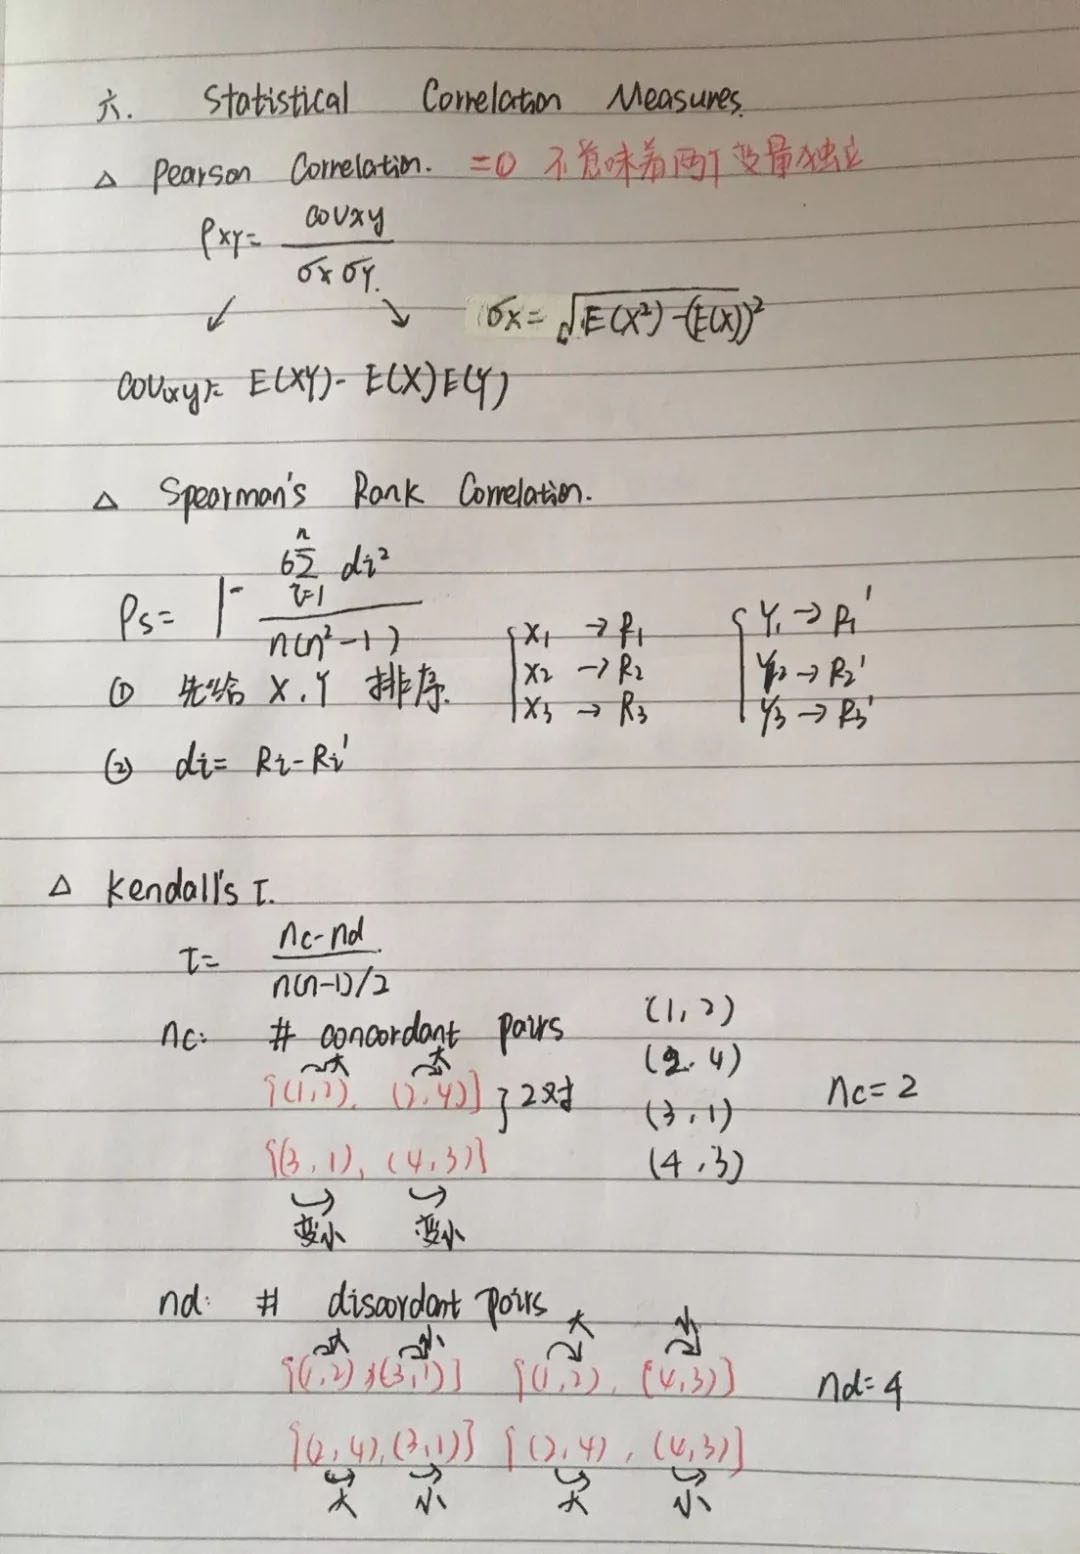 六. Statistical Correlation Measures.
△ Pearson Correlation. =0 不意味着两个变量独立
ρxy= covxy / σx σy.
σx= √E(X²)-(E(X))²
cov(xy)= E(XY)- E(X)E(Y)
△ Spearman's Rank Correlation.
ρs= 1- 6 Σ(i=1 to n) di² / n(n²-1)
① 先给 X.Y 排序.
X1 → R1 Y1 → R1'
X2 → R2 Y2 → R2'
X3 → R3 Y3 → R3'
② di= Ri-Ri'
△ Kendall's τ.
τ= nc-nd / n(n-1)/2
nc: # concordant pairs
大 大
{(1,2), (2,4)} } 2对
{(3,1), (4,3)}
变小 变小
(1,2)
(2.4)
(3,1)
(4,3)
nc=2
nd: # discordant pairs
大 小 大 小
{(1,2),(3,1)} {(1,2), (4,3)}
nd=4
{(2,4),(3,1)} {(2,4), (4,3)}
大 小 大 小